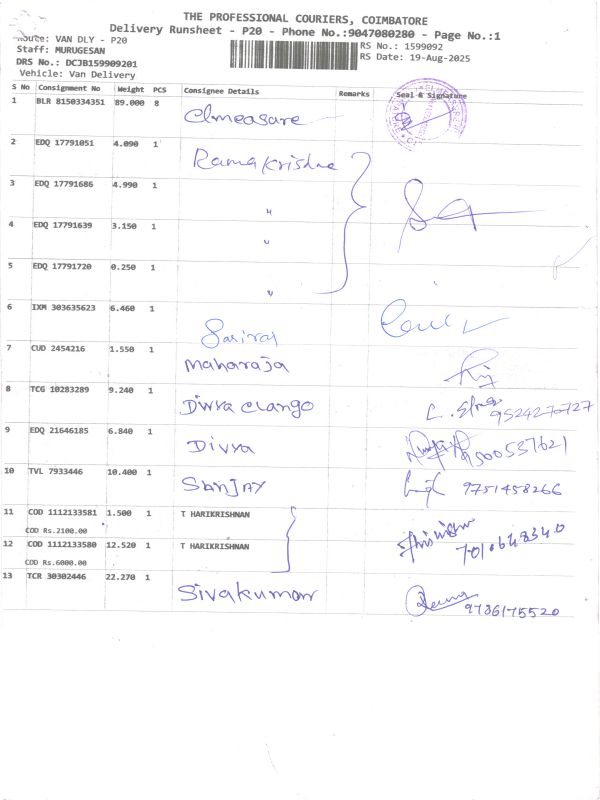 THE PROFESSIONAL COURIERS, COIMBATORE
Delivery Runsheet - P20 - Phone No.:9047080280 - Page No.:1
Route: VAN DLY - P20
RS No.: 1599092
Staff: MURUGESAN
RS Date: 19-Aug-2025
DRS No.: DCJB159909201
Vehicle: Van Delivery
S No Consignment No Weight PCS Consignee Details Remarks Seal & Signature
1 BLR 8150334351 89.000 8 Elmeasure
2 EDQ 17791051 4.090 1 Ramakrishna
3 EDQ 17791686 4.990 1 "
4 EDQ 17791639 3.150 1 "
5 EDQ 17791720 0.250 1 "
6 IXM 303635623 6.460 1 Sairaj
7 CUD 2454216 1.550 1 Maharaja
8 TCG 10283289 9.240 1 Divya Elango 9524270727
9 EDQ 21646185 6.840 1 Divya 9500537621
10 TVL 7933446 10.400 1 Sanjay 9751458266
11 COD 1112133581 1.500 1 T HARIKRISHNAN
COD Rs.2100.00
12 COD 1112133580 12.520 1 T HARIKRISHNAN
COD Rs.6000.00
13 TCR 30302446 22.270 1 Sivakumar 9786175520